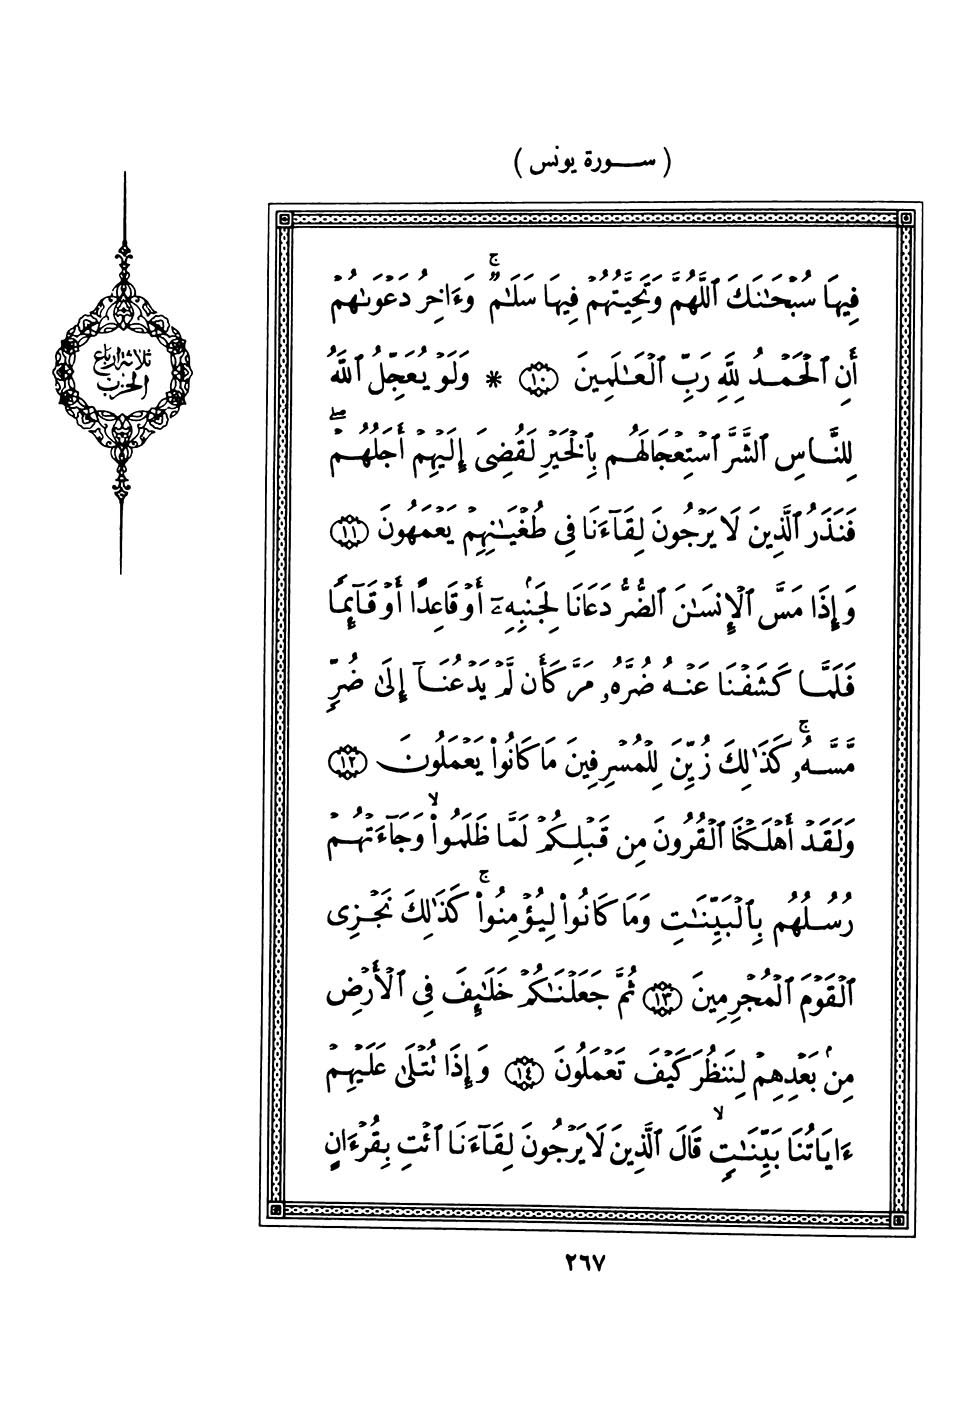 ( سورة يونس )
ثلاثة أرباع
الحزب
فِيهَا سُبْحَٰنَكَ ٱللَّهُمَّ وَتَحِيَّتُهُمْ فِيهَا سَلَٰمٌ ۚ وَءَاخِرُ دَعْوَىٰهُمْ
أَنِ ٱلْحَمْدُ لِلَّهِ رَبِّ ٱلْعَٰلَمِينَ ١٠ * وَلَوْ يُعَجِّلُ ٱللَّهُ
لِلنَّاسِ ٱلشَّرَّ ٱسْتِعْجَالَهُم بِٱلْخَيْرِ لَقُضِىَ إِلَيْهِمْ أَجَلُهُمْ ۖ
فَنَذَرُ ٱلَّذِينَ لَا يَرْجُونَ لِقَآءَنَا فِى طُغْيَٰنِهِمْ يَعْمَهُونَ ١١
وَإِذَا مَسَّ ٱلْإِنسَٰنَ ٱلضُّرُّ دَعَانَا لِجَنۢبِهِۦٓ أَوْ قَاعِدًا أَوْ قَآئِمًا
فَلَمَّا كَشَفْنَا عَنْهُ ضُرَّهُۥ مَرَّ كَأَن لَّمْ يَدْعُنَآ إِلَىٰ ضُرٍّ
مَّسَّهُۥ ۚ كَذَٰلِكَ زُيِّنَ لِلْمُسْرِفِينَ مَا كَانُوا۟ يَعْمَلُونَ ١٢
وَلَقَدْ أَهْلَكْنَا ٱلْقُرُونَ مِن قَبْلِكُمْ لَمَّا ظَلَمُوا۟ ۙ وَجَآءَتْهُمْ
رُسُلُهُم بِٱلْبَيِّنَٰتِ وَمَا كَانُوا۟ لِيُؤْمِنُوا۟ ۚ كَذَٰلِكَ نَجْزِى
ٱلْقَوْمَ ٱلْمُجْرِمِينَ ١٣ ثُمَّ جَعَلْنَٰكُمْ خَلَٰٓئِفَ فِى ٱلْأَرْضِ
مِنۢ بَعْدِهِمْ لِنَنظُرَ كَيْفَ تَعْمَلُونَ ١٤ وَإِذَا تُتْلَىٰ عَلَيْهِمْ
ءَايَاتُنَا بَيِّنَٰتٍ ۙ قَالَ ٱلَّذِينَ لَا يَرْجُونَ لِقَآءَنَا ٱئْتِ بِقُرْءَانٍ
٢٦٧